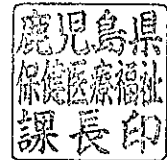 鹿児島県
保健医療福祉
課長印